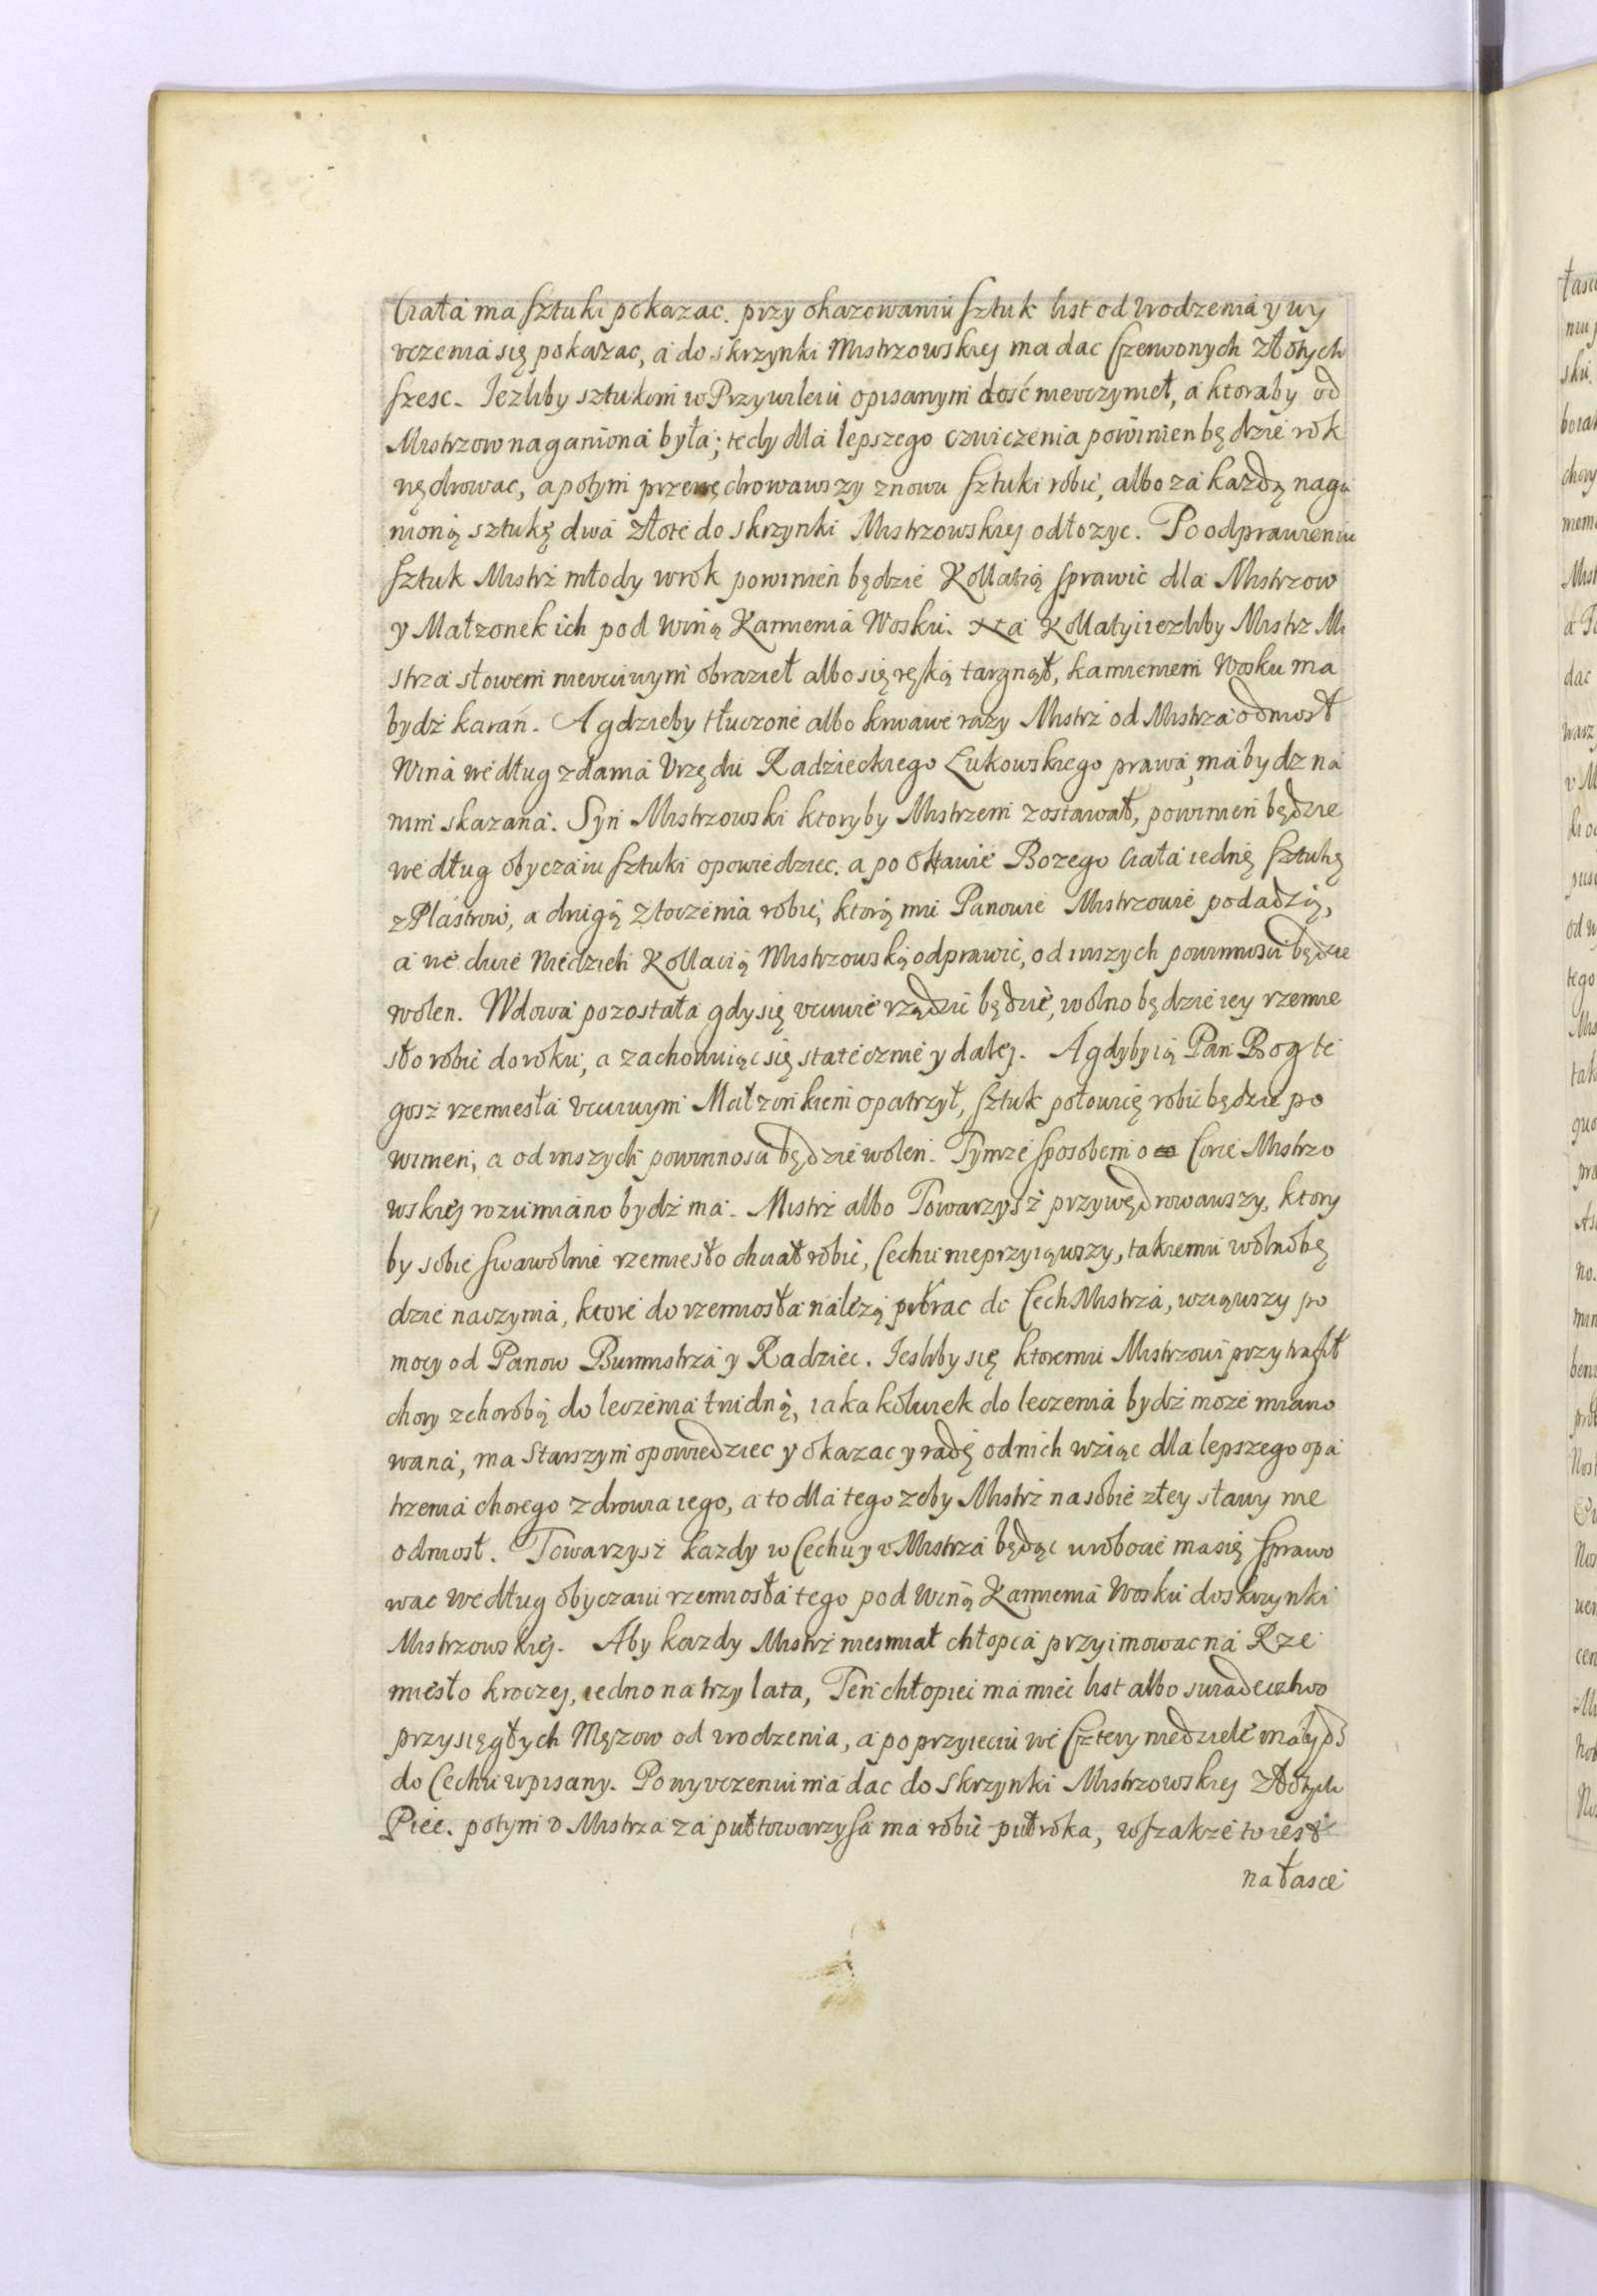 Ciała ma sztuki pokazac. przy okazowaniu sztuk list od Vrodzenia y wy
vczenia się pokazac, a do skrzynki Mistrzowskiej ma dac Czerwonych złotych
szesc. Iezliby sztukom w Przywileiu opisanym dość nievczynieł, a ktoraby od
Mistrzow naganiona była; tedy dla lepszego czwiczenia powinien będzie rok
wędrowac, a potym przewędrowawszy znowu sztuki robić, albo za każdą naga
nioną sztukę dwa złote do skrzynki Mistrzowskiej odłozyc. Po odprawieniu
sztuk Mistrz młody w rok powinien będzie Kollatią sprawić dla Mistrzow
y Małzonek ich pod winą Kamienia Wosku. Kollatyi iezliby Mistrz Mi
strza słowem nievciwym obrazieł albo się ręką targnął, kamieniem Wosku ma
bydź karan. A gdzieby tłuczone albo krwawe razy Mistrz od Mistrza odniosł
Wina według zdania Vrzędu Radzieckiego Łukowskiego prawa, ma bydz na
nim skazana. Syn Mistrzowski ktoryby Mistrzem zostawał, powinien będzie
według obyczaiu sztuki opowiedziec. a po Oktawie Bozego Ciała iednę sztukę
z Plastrow, a drugą z toczenia robić, ktorą mu Panowie Mistrzowie podadzą,
a we dwie Niedzieli Kollacią Mistrzowską odprawić, od inszych powinnosci będzie
wolen. Wdowa pozostała gdy się vczciwie rządzić będzie, wolno będzie iey rzemie
sło robić do roku, a zachowuiąc się statecznie y dalej. A gdyby ią Pan Bog te
gosz rzemiesła vcciwym Małzonkiem opatrzył, sztuk połowicę robić będzie po
winien, a od inszych powinnosci będzie wolen. Tymze sposobem o Corce Mistrzo
wskiej rozumiano bydź ma. Mistrz albo Towarzysz przywędrowawszy, ktory
by sobie swawolnie rzemiesło chciał robić, Cechu nieprzyiąwszy, takiemu wolno bę
dzie naczynia, ktore do rzemiosła należą pobrac do Cech Mistrza, wziąwszy po
mocy od Panow Burmistrza y Radziec. Iesliby się ktoremu Mistrzowi przytrafił
chory z chorobą do leczenia trudną, iaka kolwiek do leczenia bydź moze miano
wana, ma Starszym opowiedziec y okazac y radę od nich wziąc dla lepszego opa
trzenia chorego zdrowia iego, a to dla tego zeby Mistrz na sobie złey sławy nie
odniosł. Towarzysz kazdy w Cechu y v Mistrza będąc w robocie ma się sprawo
wac według obyczaiu rzemiosła tego pod winą Kamienia Wosku do skrzynki
Mistrzowskiej. Aby kazdy Mistrz niesmiał chłopca przyimowac na Rze
miesło kroczej, iedno na trzy lata, Ten chłopiec ma mieć list albo swiadectwo
przysięgłych Męzow od vrodzenia, a po przyieciu we Cztery niedziele ma bydź
do Cechu wpisany. Po wyvczeniu ma dac do Skrzynki Mistrzowskiej złotych
Pięć. potym v Mistrza za pułtowarzysza ma robić puł roka, wszakze to iest
na łasce